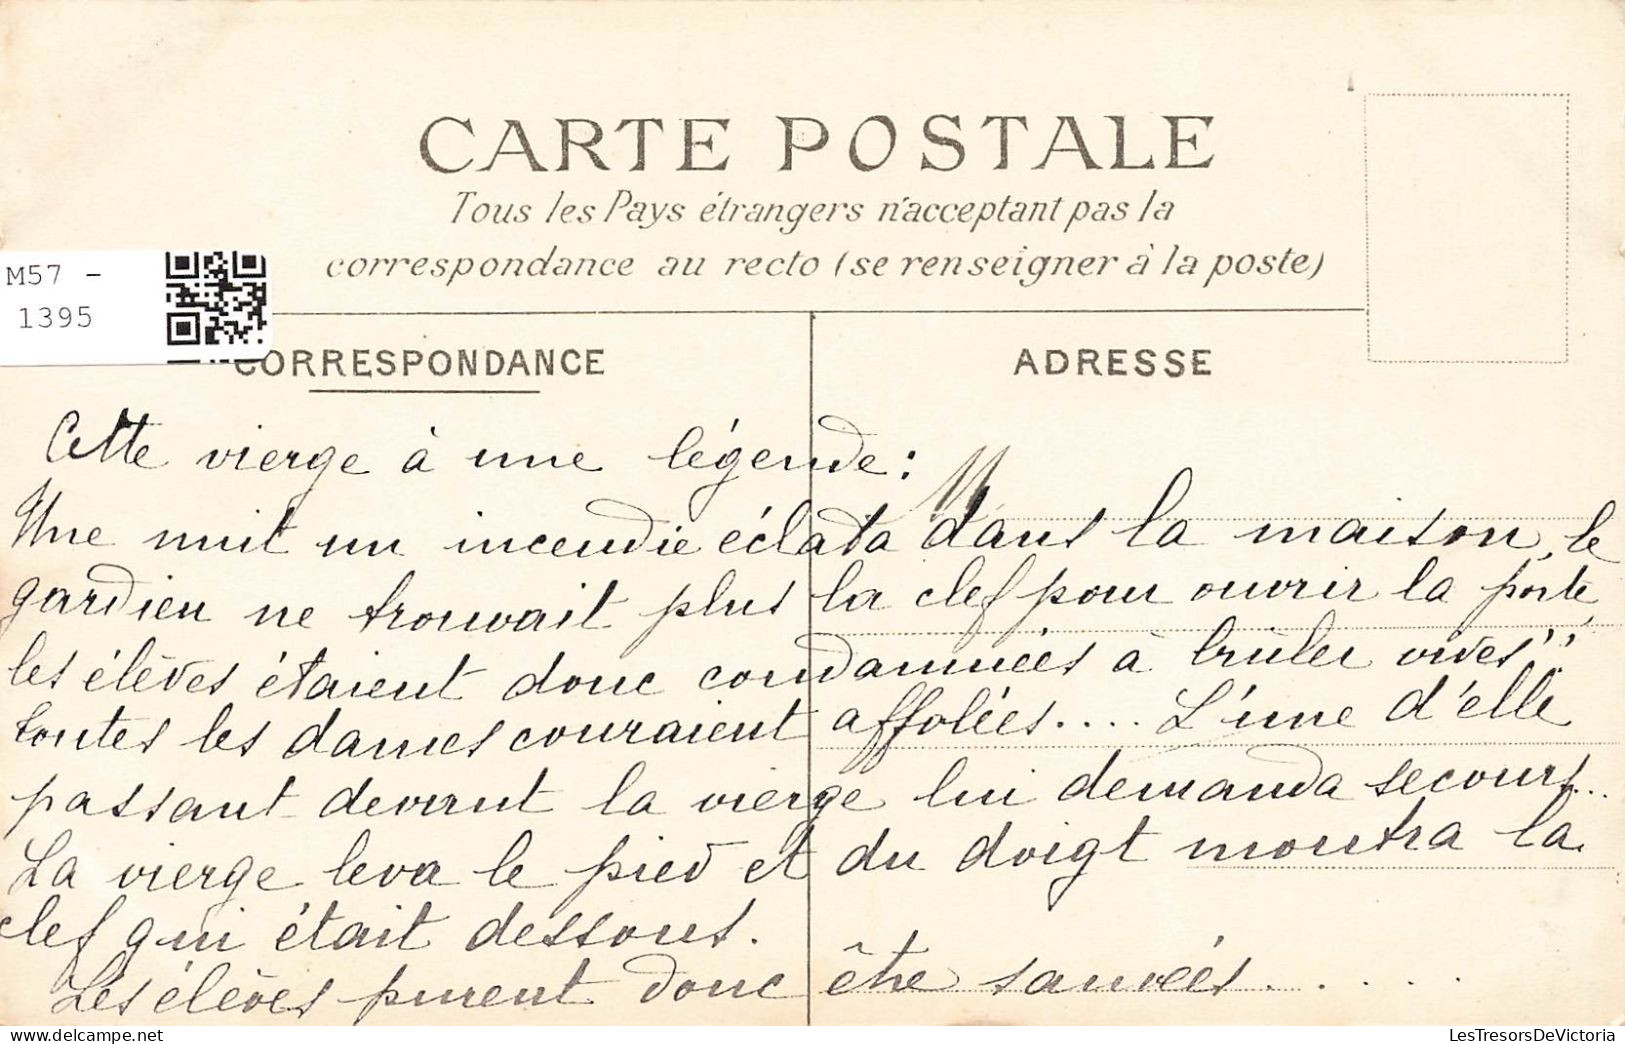 CARTE POSTALE
Tous les Pays étrangers n'acceptant pas la
correspondance au recto (se renseigner à la poste)
M57 -
1395
CORRESPONDANCE
ADRESSE
Cette vierge à une légende :
Une nuit un incendie éclata dans la maison, le
gardien ne trouvait plus la clef pour ouvrir la porte,
les élèves étaient donc condamnées à brûler vives !!
toutes les dames couraient affolées.... L'une d'elle
passant devant la vierge lui demanda secours...
La vierge leva le pied et du doigt montra la
clef qui était dessous.
Les élèves purent donc être sauvées.....
LesTresorsDeVictoria